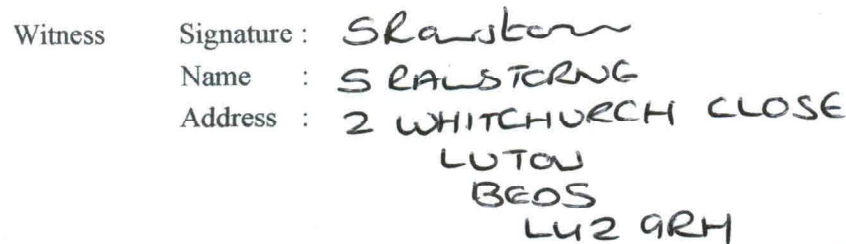 Witness Signature : SRawstorne
Name : S RAWSTORNE
Address : 2 WHITCHURCH CLOSE
LUTON
BEDS
LU2 9RH